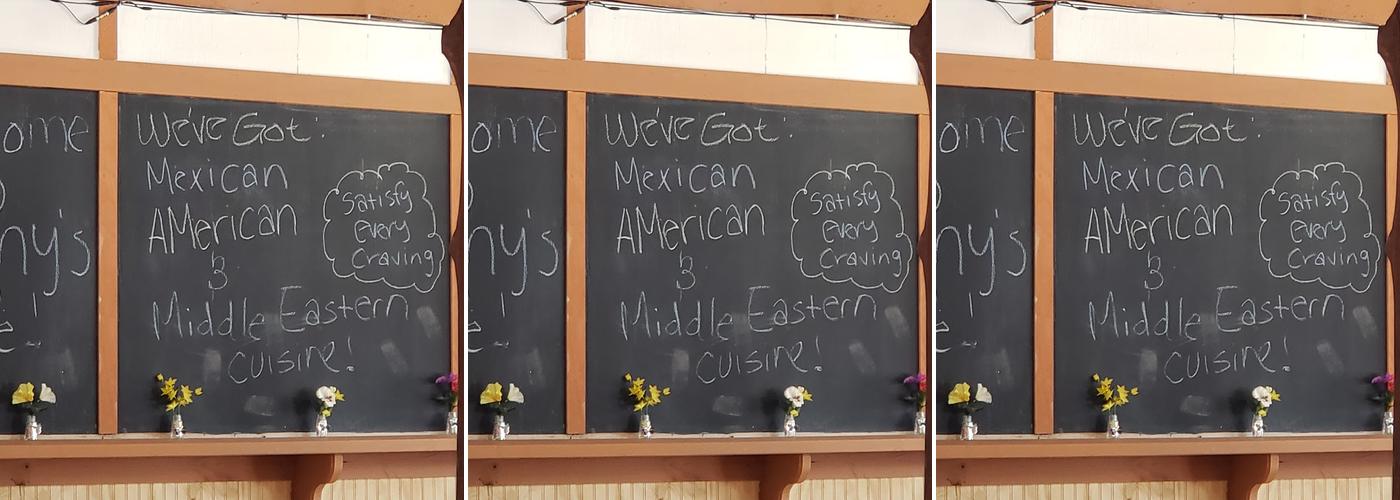 ome
ny's
We've Got:
Mexican
AMerican
&
Middle Eastern
cuisine!
Satisfy
every
Craving
ome
ny's
We've Got:
Mexican
AMerican
&
Middle Eastern
cuisine!
Satisfy
every
Craving
ome
ny's
We've Got:
Mexican
AMerican
&
Middle Eastern
cuisine!
Satisfy
every
Craving